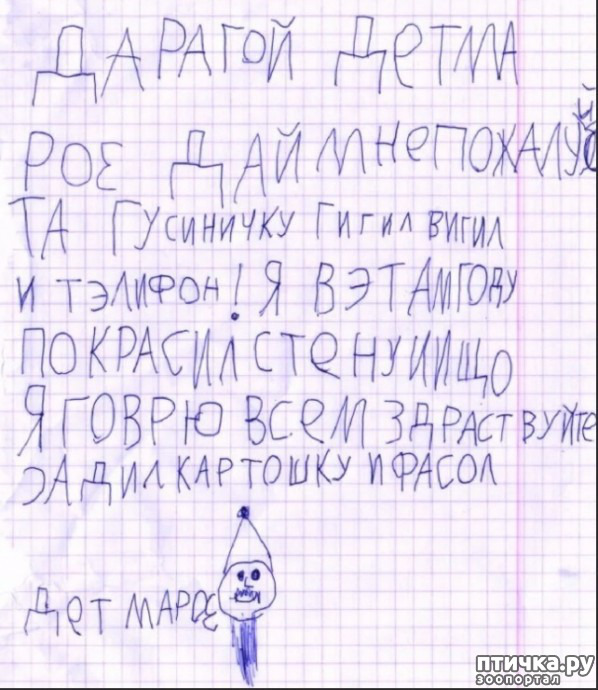 ДАРАГОЙ ДЕТМА
РОЗ ДАЙ МНЕПОЖАЛУЙС
ТА ГУСИНИЧКУ ГИГИЛ ВИГИЛ
И ТЭЛИФОН! Я В ЭТАМГОДУ
ПОКРАСИЛ СТЕНУ ИИЩО
Я ГОВРЮ ВСЕМ ЗДРАСТВУЙТЕ
ЭАДИЛ КАРТОШКУ И ФАСОЛ
ДЕТ МАРОЗ
птичка.ру
зоопортал